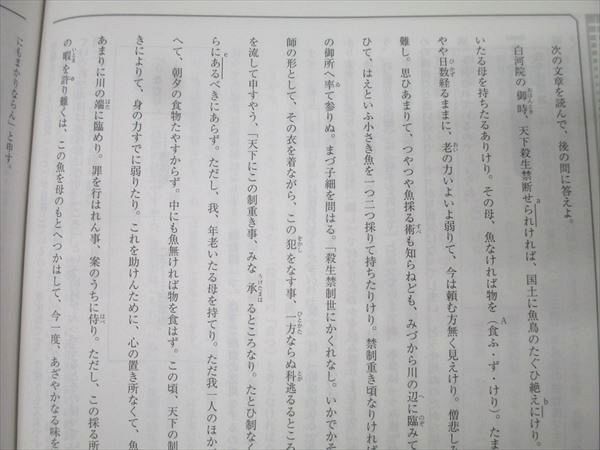 次の文章を読んで、後の問に答えよ。
白河院の御時、天下殺生禁断せられければ、国土に魚鳥のたぐひ絶えにけり。
いたる母を持ちたるありけり。その母、魚なければ物を(食ふ・ず・けり)。たま
やや日数経るままに、老の力いよいよ弱りて、今は頼む方無く見えけり。僧悲しみ
難し。思ひあまりて、つやつや魚採る術も知らねども、みづから川の辺に臨みて
ひて、はえといふ小さき魚を一つ二つ採りて持ちたりけり。禁制重き頃なりければ
の御所へ率て参りぬ。まづ子細を問はる。「殺生禁制世にかくれなし。いかでかそ
師の形として、その衣を着ながら、この犯をなす事、一方ならぬ科逃るるところ
を流して申すやう、「天下にこの制重き事、みな承るところなり。たとひ制なく
らにあるべきにあらず。ただし、我、年老いたる母を持てり。ただ我一人のほか
へて、朝夕の食物たやすからず。中にも魚無ければ物を食はず。この頃、天下の制
きによりて、身の力すでに弱りたり。これを助けんために、心の置き所なくて、魚
あまりに川の端に臨めり。罪を行はれん事、案のうちに侍り。ただし、この採る所
の暇を許り難くは、この魚を母のもとへつかはして、今一度、あざやかなる味を
にもまかりならん」と申す。